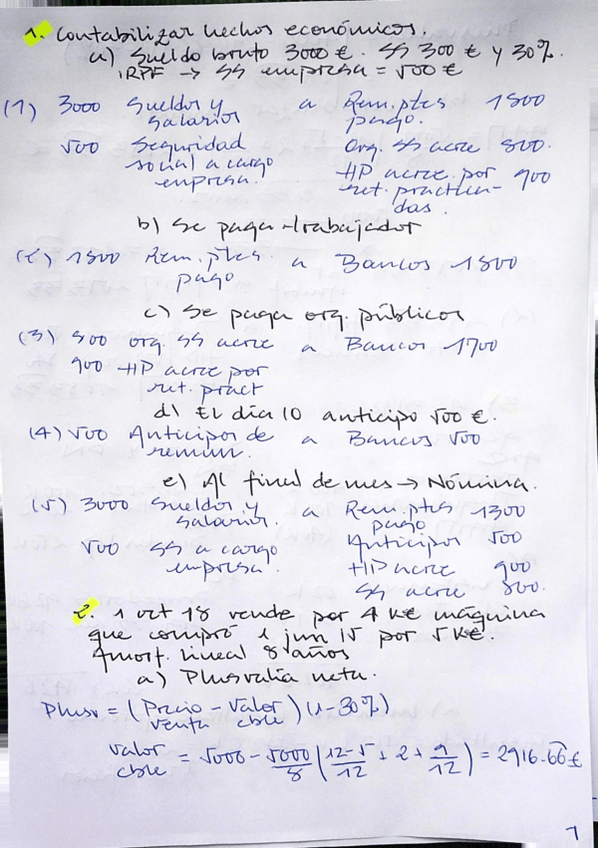 1. Contabilizar hechos económicos.
a) Sueldo bruto 3000 €. SS 300 € y 30%.
IRPF → SS empresa = 500 €
(1) 3000 Sueldos y salarios. a Rem. ptes pago. 1800
500 Seguridad social a cargo empresa. Org. SS acre 800.
HP acre. por ret. practicadas. 900
b) Se paga trabajador
(2) 1800 Rem. ptes pago a Bancos 1800
c) Se paga org. públicos
(3) 800 org. SS acre a Bancos 1700
900 HP acre por
ret. pract
d) El día 10 anticipo 500 €.
(4) 500 Anticipos de remun. a Bancos 500
e) Al final de mes → Nómina.
(5) 3000 Sueldos y salarios. a Rem. ptes pago 1300
500 SS a cargo empresa. Anticipos 500
HP acre 900
SS acre 800.
2. 1 oct 18 vende por 4 K€ máquina
que compró 1 jun 15 por 5 K€.
Amort. lineal 8 años
a) Plusvalía neta.
Plusv = (Precio venta - Valor cble) (1-30%)
Valor cble = 5000 - 5000/8 (12-5/12 + 2 + 9/12) = 2916.66 €
7